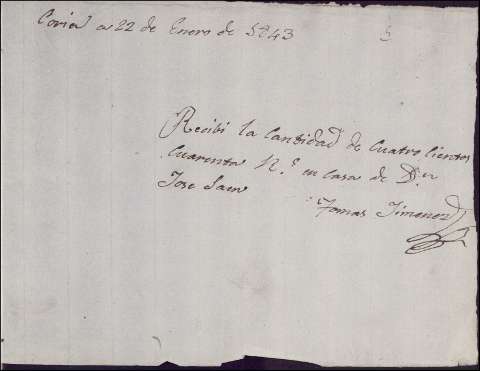 Coria a 22 de Enero de 1843
Recibi la Cantidad de Cuatro Cientos
Cuarenta R.s en casa de D.n
Jose Saen
Tomas Jimenez